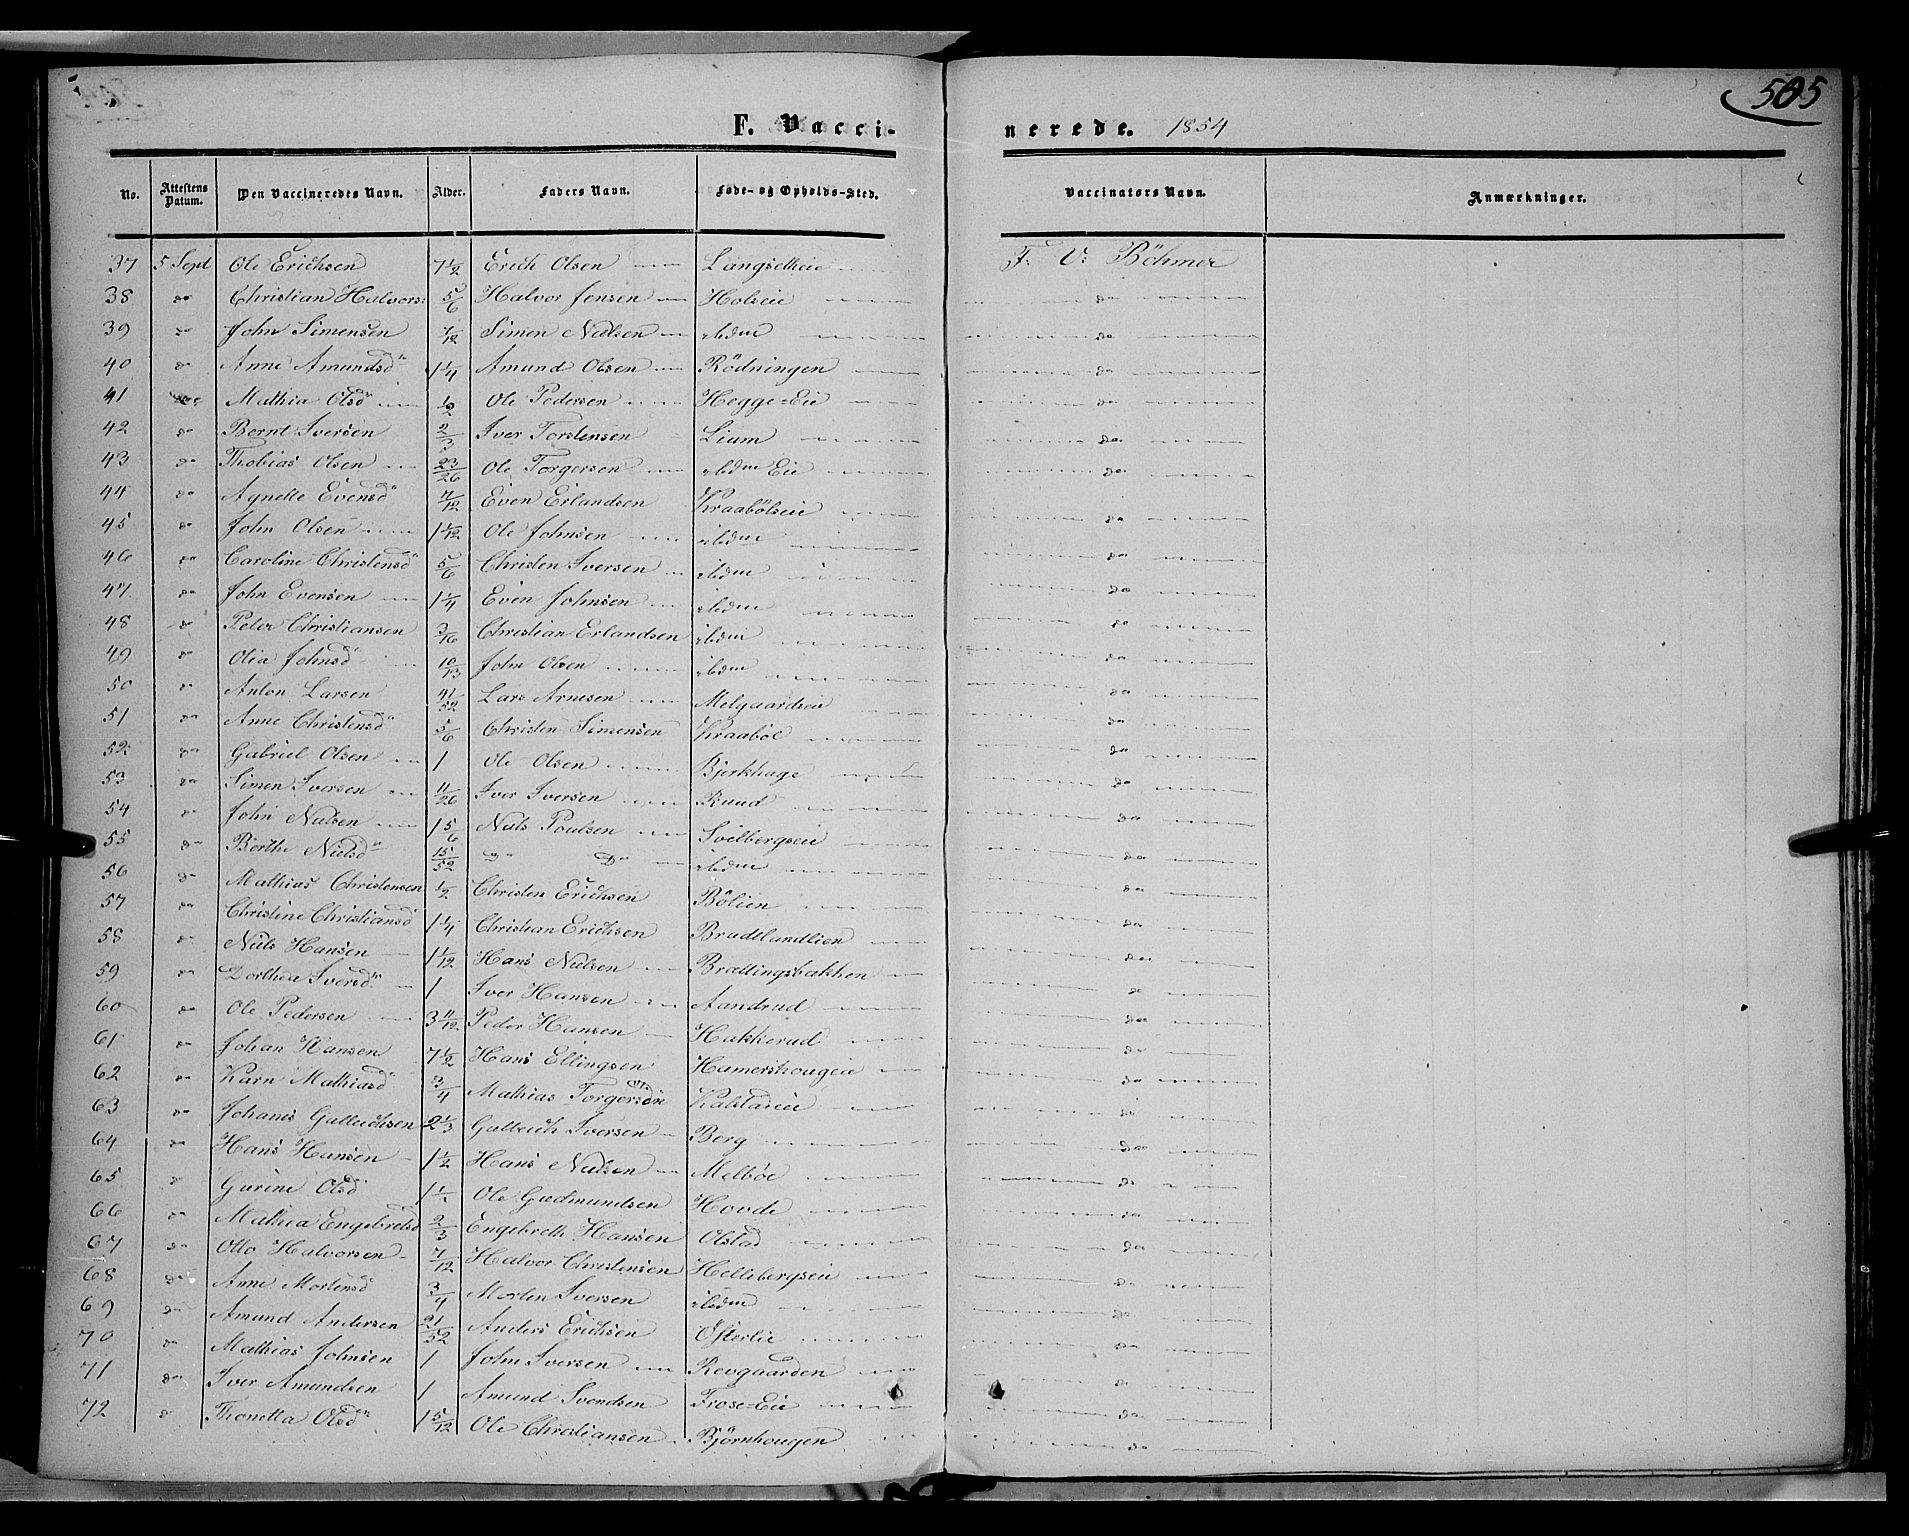 505
F. Vacci-
nerede. 1854
No. Attestens Datum. Den Vaccineredes Navn. Alder. Faders Navn. Føde- og Opholds-Sted. Vaccinators Navn. Anmærkninger.
37 5 Sept Ole Erichsen 7 1/2 Erich Olsen Langsetheie F. V. Böhmer
38 do Christian Halvors: 5/6 Halvor Jensen Holseie do
39 do John Simensen 7/12 Simen Nielsen ibdm do
40 do Anne Amundsd 1 1/4 Amund Olsen Rödningen do
41 do Mathia Olsd 1/2 Ole Pedersen Hegge-Eie do
42 do Bernt Iversen 2/3 Iver Torstensen Lium do
43 do Thobias Olsen 23/26 Ole Torgersen ibdm Eie do
44 do Agnette Evensd 7/12 Even Erlandsen Kraabölseie do
45 do John Olsen 1 1/12 Ole Johnsen ibdm do
46 do Caroline Christensd 5/6 Christen Iversen ibdm do
47 do John Evensen 1 1/4 Even Johnsen ibdm do
48 do Peter Christiansen 3/16 Christian Erlandsen ibdm do
49 do Olia Johnsd 10/13 John Olsen ibdm do
50 do Anton Larsen 41/52 Lars Arnesen Melgaardseie do
51 do Anne Christensd 5/6 Christen Simensen Kraaböl do
52 do Gabriel Olsen 1 Ole Olsen Bjerkhage do
53 do Simen Iversen 11/26 Iver Iversen Ruud do
54 do John Nielsen 1 5/6 Niels Poulsen Svilbergseie do
55 do Berthe Nielsd 15/52 Do Do ibdm do
56 do Mathias Christensen 1/2 Christen Erichsen Bölien do
57 do Christine Christiansd 1 1/4 Christian Erichsen Bradtlandlien do
58 do Niels Hansen 1 1/12 Hans Nielsen Brættingsbakken do
59 do Dorthea Iversd 1 Iver Hansen Aandrud do
60 do Ole Pedersen 3 11/12 Peder Hansen Hakkerud do
61 do Johan Hansen 7 1/2 Hans Ellingsen Hamershougeie do
62 do Karn Mathiasd 3/4 Mathias Torgersen Kalstadeie do
63 do Johans Gulbichsen 2 1/3 Gulbrich Iversen Berg do
64 do Hans Hansen 1 1/2 Hans Nielsen Melböe do
65 do Gurine Olsd Ole Gudmundsen Hovde do
66 do Mathea Engebretsd 2/3 Engebreth Hansen Olstad do
67 do Otto Halvorsen 7/12 Halvor Christensen Hellebergseie do
68 do Anne Mortensd 3/4 Morten Iversen ibdm do
69 do Amund Andersen 21/52 Anders Erichsen Österlie do
70 do Mathias Johnsen 1 John Iversen Revgaarden do
71 do Iver Amundsen 1 Amund Svendsen Frose-Eie do
72 do Thonetta Olsd 1 5/12 Ole Christiansen Björnhougen do